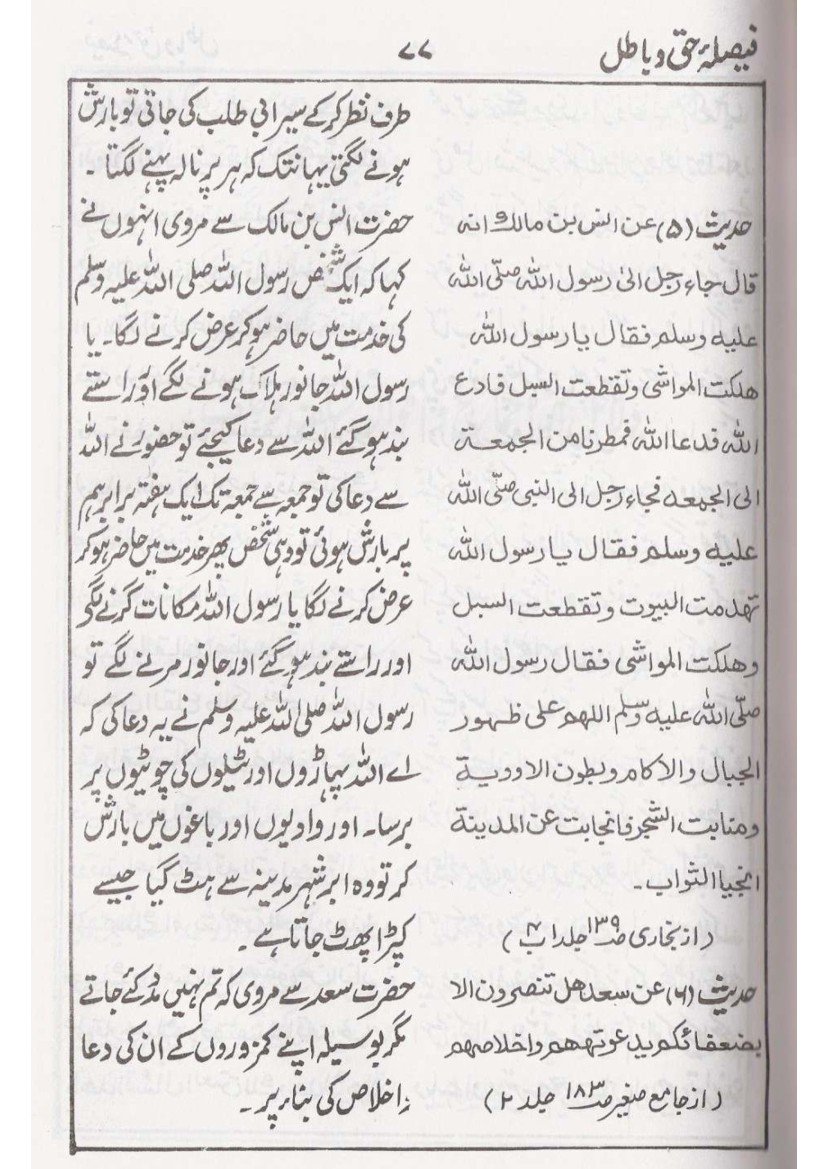 فیصلۂ حق و باطل
۷۷
طرف نظر کر کے سیرابی طلب کی جاتی تو بارش
ہونے لگتی یہانتک کہ ہر پرنالہ بہنے لگتا۔
حدیث (۵) عن انس بن مالك انه
قال جاء رجل الی رسول الله صلّی الله
علیه وسلم فقال یا رسول الله
هلكت المواشی وتقطعت السبل فادع
الله فدعا الله فمطرنا من الجمعة
الی الجمعه فجاء رجل الی النبی صلّی الله
علیه وسلم فقال یا رسول الله
تهدمت البیوت وتقطعت السبل
وهلكت المواشی فقال رسول الله
صلّی الله علیه وسلم اللهم علی ظهور
الجبال والاکام وبطون الاودیة
ومنابت الشجر فانجابت عن المدینة
انجیا الثواب۔
(از بخاری صـ۱۳۹ جلد۱ پ ۴)
حضرت انس بن مالک سے مروی انہوں نے
کہا کہ ایک شخص رسول اللہ صلی اللہ علیہ وسلم
کی خدمت میں حاضر ہو کر عرض کرنے لگا۔ یا
رسول اللہ جانور ہلاک ہونے لگے اور راستے
بند ہو گئے اللہ سے دعا کیجئے تو حضور نے اللہ
سے دعا کی تو جمعہ سے جمعہ تک ایک ہفتہ برابر ہم
پر بارش ہوئی تو وہی شخص پھر خدمت میں حاضر ہو کر
عرض کرنے لگا یا رسول اللہ مکانات گرنے لگے
اور راستے بند ہو گئے اور جانور مرنے لگے تو
رسول اللہ صلی اللہ علیہ وسلم نے یہ دعا کی کہ
اے اللہ پہاڑوں اور ٹیلوں کی چوٹیوں پر
برسا۔ اور وادیوں اور باغوں میں بارش
کر تو وہ ابر شہر مدینہ سے ہٹ گیا جیسے
کپڑا پھٹ جاتا ہے۔
حدیث (۶) عن سعد هل تنصرون الا
بضعفائكم بدعوتهم واخلاصهم
(از جامع صغیر صـ۱۸۳ جلد ۲)
حضرت سعد سے مروی کہ تم نہیں مدد کئے جاتے
مگر بوسیلہ اپنے کمزوروں کے ان کی دعا
اخلاص کی بناء پر۔